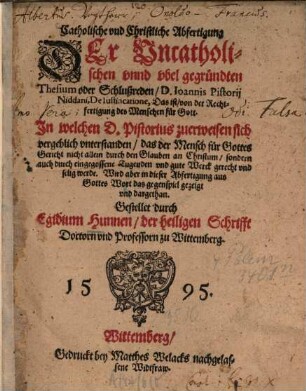 Albertus Voÿthovv Onoldo-Francus.
Catholische vnd Christliche Abfertigung
Der Vncatholi-
schen vnnd vbel gegründten
Thesium oder Schlußreden / D. Ioannis Pistorij
Niddani, De Iustificatione, Das ist / von der Recht-
fertigung des Menschen für Gott.
In welchen D. Pistorius zuerweisen sich
vergeblich vnterstanden / das der Mensch für Gottes
Gericht nicht allein durch den Glauben an Christum / sondern
auch durch eingegossene Tugenden vnd gute Werck gerecht vnd
selig werde. Wird aber in dieser Abfertigung aus
Gottes Wort das gegenspiel gezeigt
vnd dargethan.
Gestellet durch
Egidium Hunnen / der heiligen Schrifft
Doctorn vnd Professorn zu Wittemberg.
1595.
Wittemberg /
Gedruckt bey Matthes Welacks nachgelas-
sene Widtfraw.